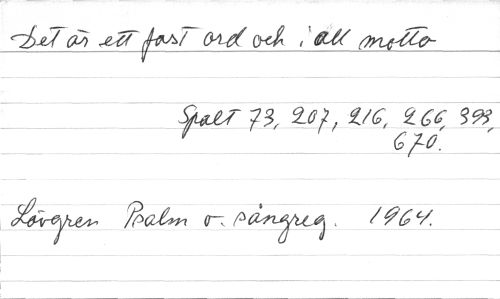 Det är ett fast ord och i all motto
Spalt 73, 207, 216, 266, 393,
670.
Lövgren Psalm o. sångreg. 1964.